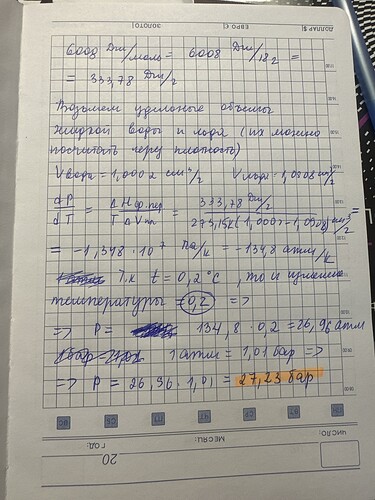 6008 Дж/моль = 6008 Дж/18г =
= 333,78 Дж/г
Возьмем удельные объемы
жидкой воды и льда (их можно
посчитать через плотность)
Vвода = 1,0002 см³/г Vльда = 1,0908 см³/г
dP/dT = ΔHф.пер/TΔVпл = 333,78 Дж/г / 273,15К(1,0002-1,0908) см³/г =
= -1,348 · 10⁷ Па/К = -134,8 атм/К
Т.к t = 0,2°C, то и изменение
температуры = 0,2 =>
=> P = 134,8 · 0,2 = 26,96 атм
1 атм = 1,01 бар =>
=> P = 26,96 · 1,01 = 27,23 бар
ДОЛЛАР $(
ЕВРО €(
ЗОЛОТО(
ЧИСЛО:
МЕСЯЦ:
ГОД:
20
ПН
ВТ
СР
ЧТ
ПТ
СБ
ВС